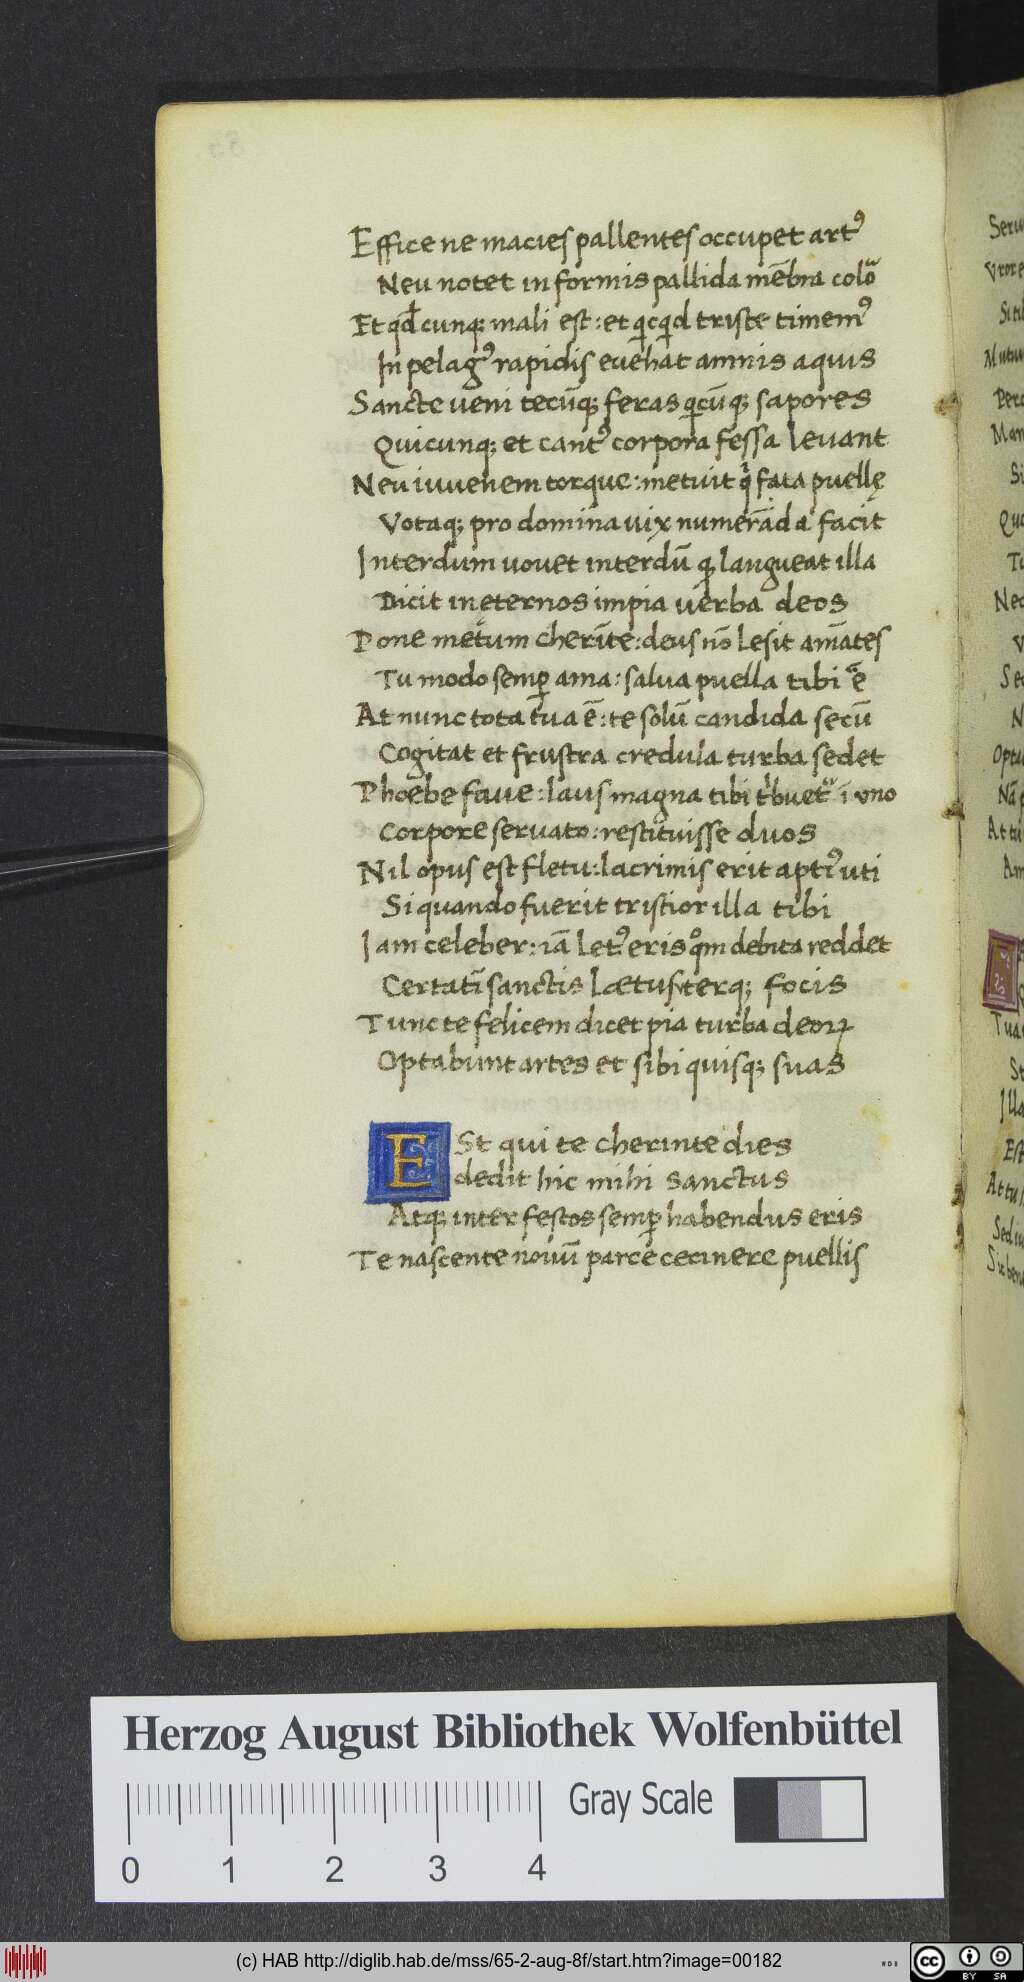 Effice ne macies pallentes occupet artꝰ
Neu notet informis pallida mēbra coloᷣ
Et qd̄cunqꝫ mali est: et qͥcqͥd triste timemꝰ
In pelagꝰ rapidis euehat amnis aquis
Sancte ueni tecūqꝫ feras qͥcūqꝫ sapores
Quicunqꝫ et cantꝰ corpora fessa leuant
Neu iuuenem torque: metuit qͥ fata puellę
Votaqꝫ pro domina uix numerāda facit
Interdum uouet interdū qꝫ langueat illa
Dicit in eternos impia uerba deos
Pone metum cherīte: deus nō lesit amātes
Tu modo semꝑ ama: salua puella tibi ē
At nunc tota tua ē: te solū candida secū
Cogitat et frustra credula turba sedet
Phoebe faue: laus magna tibi tͥbuetᷣ i uno
Corpore seruato: restituisse duos
Nil opus est fletu: lacrimis erit aptiꝰ uti
Si quando fuerit tristior illa tibi
Iam celeber: iā letꝰ eris qͦm debita reddet
Certatī sanctis lætus uterqꝫ focis
Tunc te felicem dicet pia turba deoꝝ
Optabunt artes et sibi quisqꝫ suas
ESt qui te cherinte dies
dedit hic mihi sanctus
Atqꝫ inter festos semꝑ habendus eris
Te nascente nouū parce cecinere puellis
Herzog August Bibliothek Wolfenbüttel
Gray Scale
0 1 2 3 4
(c) HAB http://diglib.hab.de/mss/65-2-aug-8f/start.htm?image=00182
cc BY SA